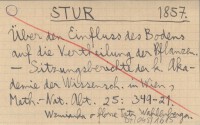 STUR 1857.
Über den Einfluss des Bodens
auf die Vertheilung der Pflanzen.
— Sitzungsberichte der k. Aka-
demie der Wissensch. in Wien,
Math.-Nat. Abt. 25: 349-21.